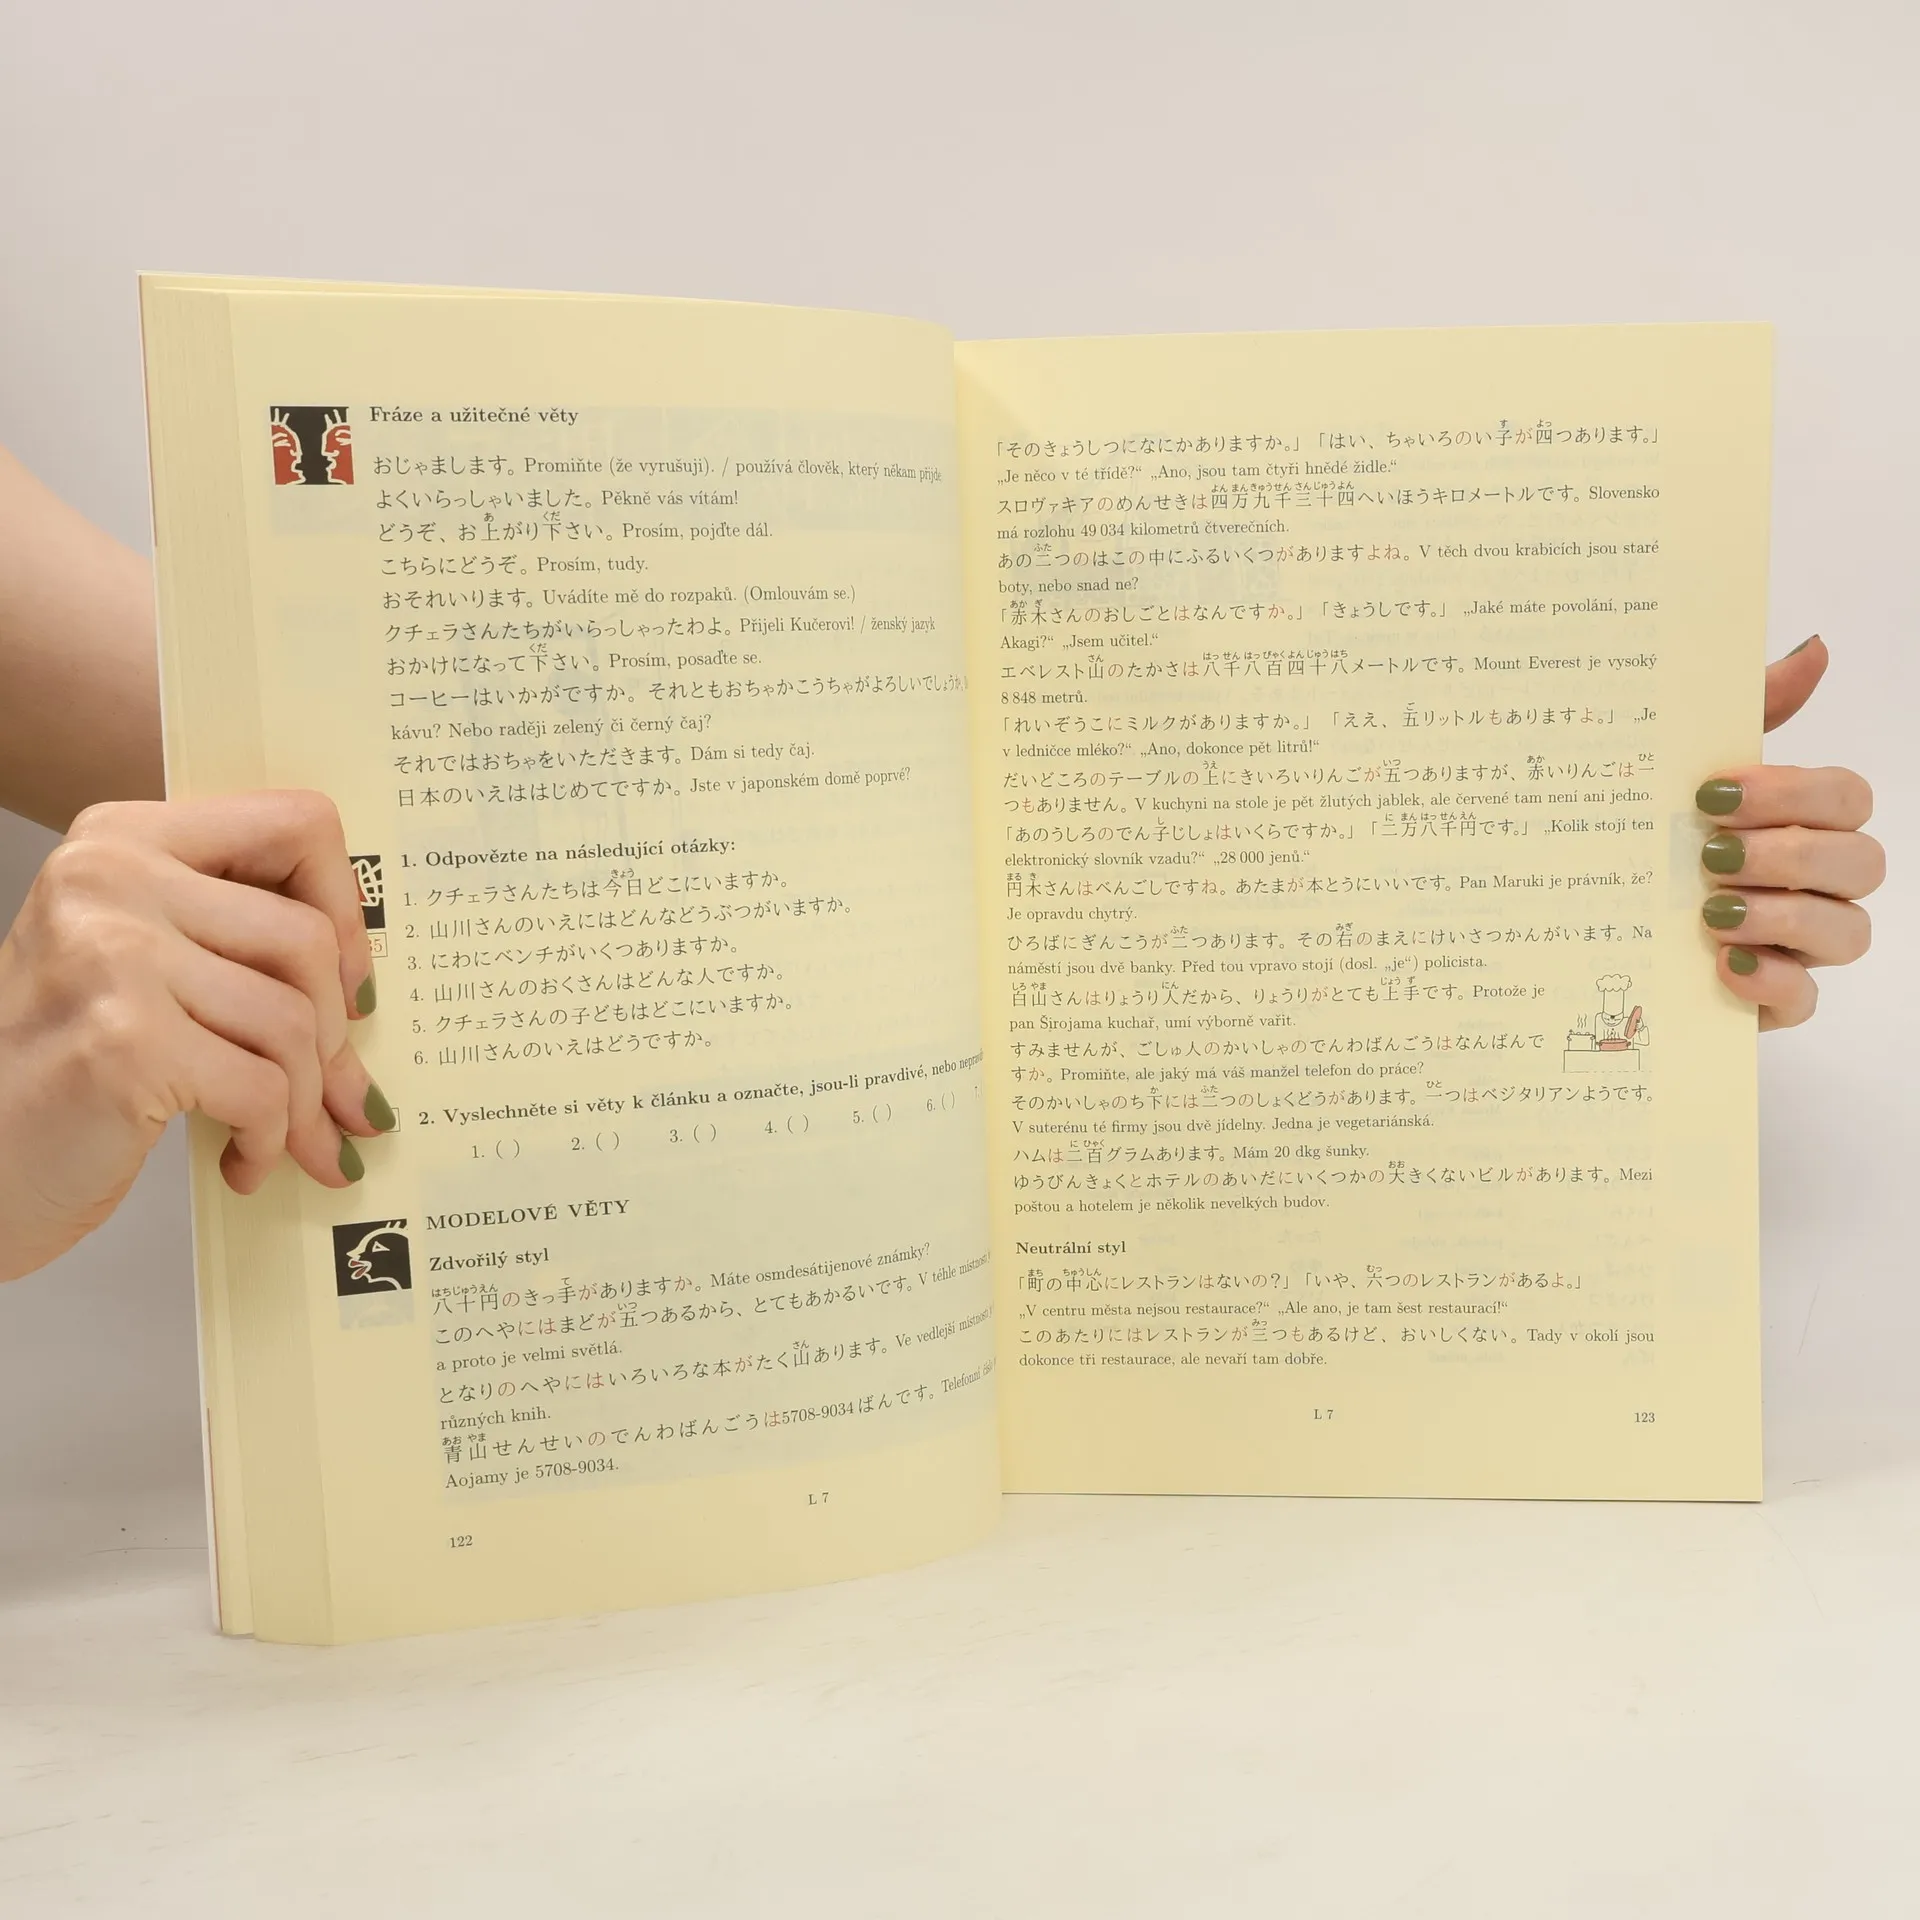 Fráze a užitečné věty
おじゃまします。Promiňte (že vyrušuji). / používá člověk, který někam přijde.
よくいらっしゃいました。Pěkně vás vítám!
あ くだ
どうぞ、お上がり下さい。Prosím, pojďte dál.
こちらにどうぞ。Prosím, tudy.
おそれいります。Uvádíte mě do rozpaků. (Omlouvám se.)
クチェラさんたちがいらっしゃったわよ。Přijeli Kučerovi! / ženský jazyk
くだ
おかけになって下さい。Prosím, posaďte se.
コーヒーはいかがですか。それともおちゃかこうちゃがよろしいでしょうか。
kávu? Nebo raději zelený či černý čaj?
それではおちゃをいただきます。Dám si tedy čaj.
日本のいえははじめてですか。Jste v japonském domě poprvé?
1. Odpovězte na následující otázky:
きょう
1. クチェラさんたちは今日どこにいますか。
2. 山川さんのいえにはどんなどうぶつがいますか。
35
3. にわにベンチがいくつありますか。
4. 山川さんのおくさんはどんな人ですか。
5. クチェラさんの子どもはどこにいますか。
6. 山川さんのいえはどうですか。
2. Vyslechněte si věty k článku a označte, jsou-li pravdivé, nebo
1. ( ) 2. ( ) 3. ( ) 4. ( ) 5. ( ) 6. ( )
MODELOVÉ VĚTY
Zdvořilý styl
はちじゅうえん て
八十円のきっ手がありますか。Máte osmdesátijenové známky?
いつ
このへやにはまどが五つあるから、とてもあかるいです。V téhle místnosti
a proto je velmi světlá.
さん
となりのへやにはいろいろな本がたく山あります。Ve vedlejší místnosti
různých knih.
あお やま
青山せんせいのでんわばんごうは5708-9034ばんです。Telefonní
Aojamy je 5708-9034.
L 7
122
す よっ
「そのきょうしつになにかありますか。」「はい、ちゃいろのい子が四つあります。」
„Je něco v té třídě?“ „Ano, jsou tam čtyři hnědé židle.“
よん まんきゅうせん さんじゅうよん
スロヴァキアのめんせきは四万九千三十四へいほうキロメートルです。Slovensko
má rozlohu 49 034 kilometrů čtverečních.
ふた
あの二つのはこの中にふるいくつがありますよね。V těch dvou krabicích jsou staré
boty, nebo snad ne?
あか ぎ
「赤木さんのおしごとはなんですか。」「きょうしです。」 „Jaké máte povolání, pane
Akagi?“ „Jsem učitel.“
さん はっ せん はっ ぴゃく よん じゅう はち
エベレスト山のたかさは八千八百四十八メートルです。Mount Everest je vysoký
8 848 metrů.
ご
「れいぞうこにミルクがありますか。」「ええ、五リットルもありますよ。」 „Je
v ledničce mléko?“ „Ano, dokonce pět litrů!“
うえ いつ あか ひと
だいどころのテーブルの上にきいろいりんごが五つありますが、赤いりんごは一
つもありません。V kuchyni na stole je pět žlutých jablek, ale červené tam není ani jedno.
し に まん はっ せん えん
「あのうしろのでん子じしょはいくらですか。」「二万八千円です。」 „Kolik stojí ten
elektronický slovník vzadu?“ „28 000 jenů.“
まる き
円木さんはべんごしですね。あたまが本とうにいいです。Pan Maruki je právník, že?
Je opravdu chytrý.
ふた みぎ
ひろばにぎんこうが二つあります。その右のまえにけいさつかんがいます。Na
náměstí jsou dvě banky. Před tou vpravo stojí (dosl. „je“) policista.
しろ やま にん じょう ず
白山さんはりょうり人だから、りょうりがとても上手です。Protože je
pan Širojama kuchař, umí výborně vařit.
すみませんが、ごしゅ人のかいしゃのでんわばんごうはなんばんで
すか。Promiňte, ale jaký má váš manžel telefon do práce?
か ふた ひと
そのかいしゃのち下には二つのしょくどうがあります。一つはベジタリアンようです。
V suterénu té firmy jsou dvě jídelny. Jedna je vegetariánská.
に ひゃく
ハムは二百グラムあります。Mám 20 dkg šunky.
おお
ゆうびんきょくとホテルのあいだにいくつかの大きくないビルがあります。Mezi
poštou a hotelem je několik nevelkých budov.
Neutrální styl
まち ちゅうしん むっ
「町の中心にレストランはないの？」「いや、六つのレストランがあるよ。」
„V centru města nejsou restaurace?“ „Ale ano, je tam šest restaurací!“
みっ
このあたりにはレストランが三つもあるけど、おいしくない。Tady v okolí jsou
dokonce tři restaurace, ale nevaří tam dobře.
L 7
123